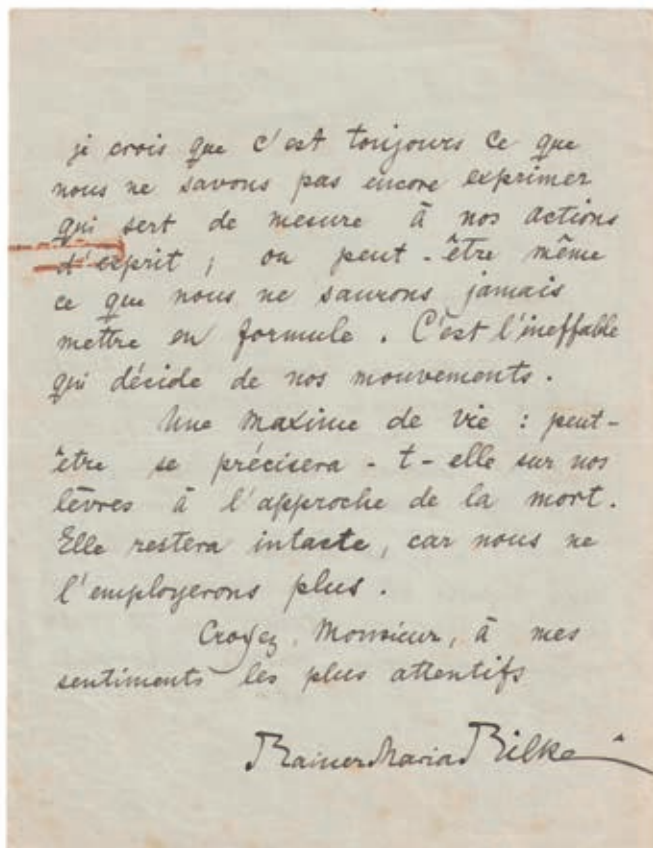 je crois que c'est toujours ce que
nous ne savons pas encore exprimer
qui sert de mesure à nos actions
d'esprit ; ou peut-être même
ce que nous ne saurons jamais
mettre en formule. C'est l'ineffable
qui décide de nos mouvements.
Une maxime de vie : peut-
être se précisera-t-elle sur nos
lèvres à l'approche de la mort.
Elle restera intacte, car nous ne
l'employerons plus.
Croyez, Monsieur, à mes
sentiments les plus attentifs
Rainer Maria Rilke